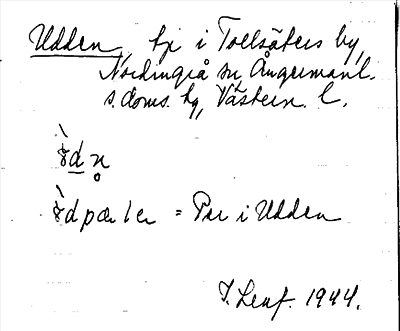 Udden, tx i Tollsäters by,
Nordingrå sn, Ångermanl.
s. doms. hg, Västern. l.
dn̥
dpær = Per i Udden
J. Lenf. 1944.